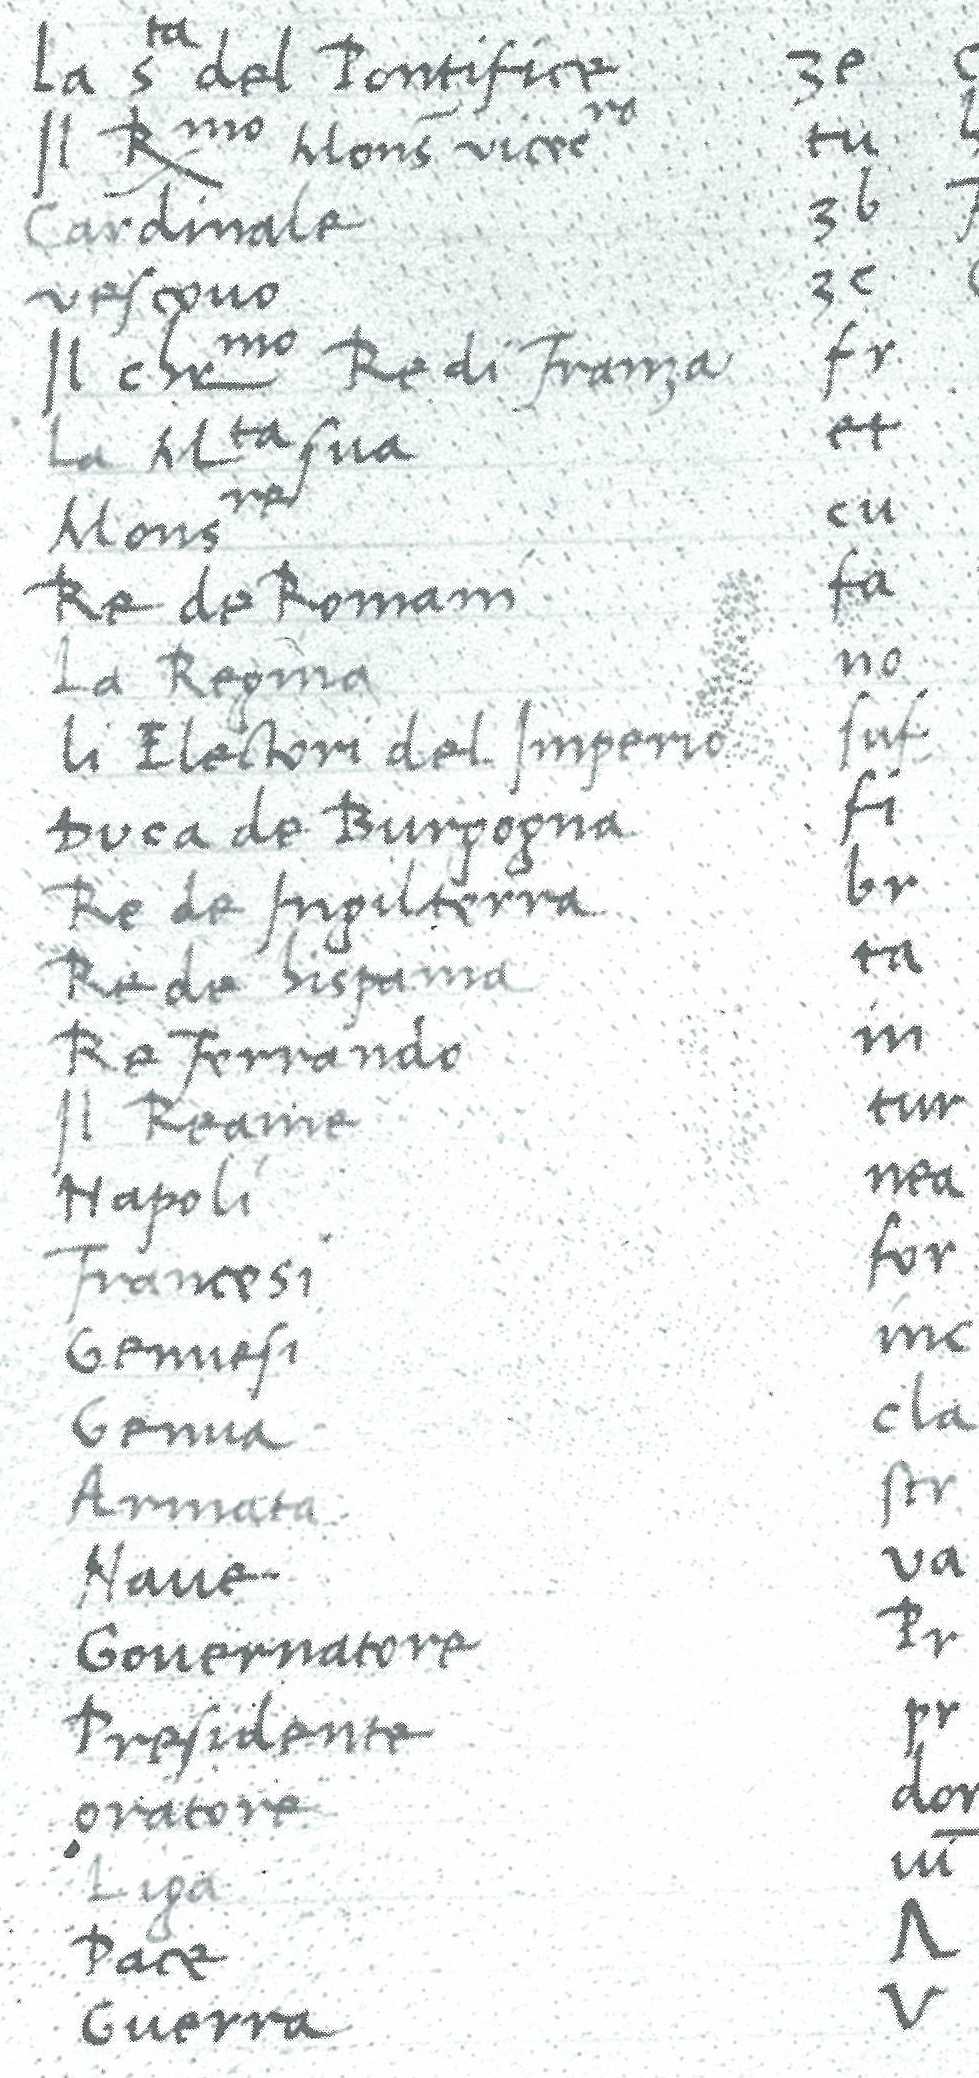 La s^ta del Pontifice 3e
Il R^mo Mons vicec^ro tu
Cardinale 3b
vescouo 3c
Il chr^mo Re di Franza fr
La M^ta sua et
Mons^re cu
Re de Romani fa
La Regina no
li Electori del Imperio suf
Duca de Burgogna fi
Re de Ingilterra br
Re de hispania ta
Re Ferrando in
Il Reame tur
Napoli nea
Francesi for
Genuesi inc
Genua cla
Armata str
Naue va
Gouernatore Pr
Presidente pr
oratore dor
Liga ui
Pace
Guerra V